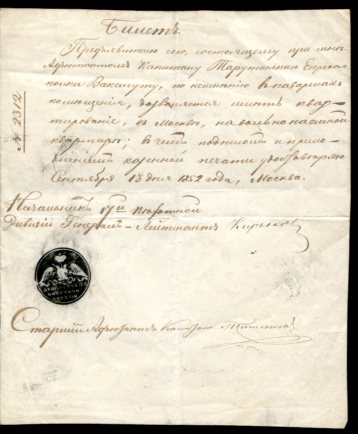 Билетъ.
Предъявителю сего, состоящему при мнѣ
Адъютантомъ Капитану Тарутинскаго Егерскаго
полка Вакституту, по неимѣнію въ казармахъ
помѣщенія, дозволяется имѣть квар-
тированіе, въ Москвѣ, на вольнонаемной
квартирѣ; въ чемъ подписомъ и прило-
женіемъ казенной печати удостовѣряю
Сентября 13 дня 1852 года, Москва.
№ 2312
Начальникъ 17й Пѣхотной
Дивизіи Генералъ-Лейтенантъ Кирьяковъ
Старшій Адъютантъ Капитанъ